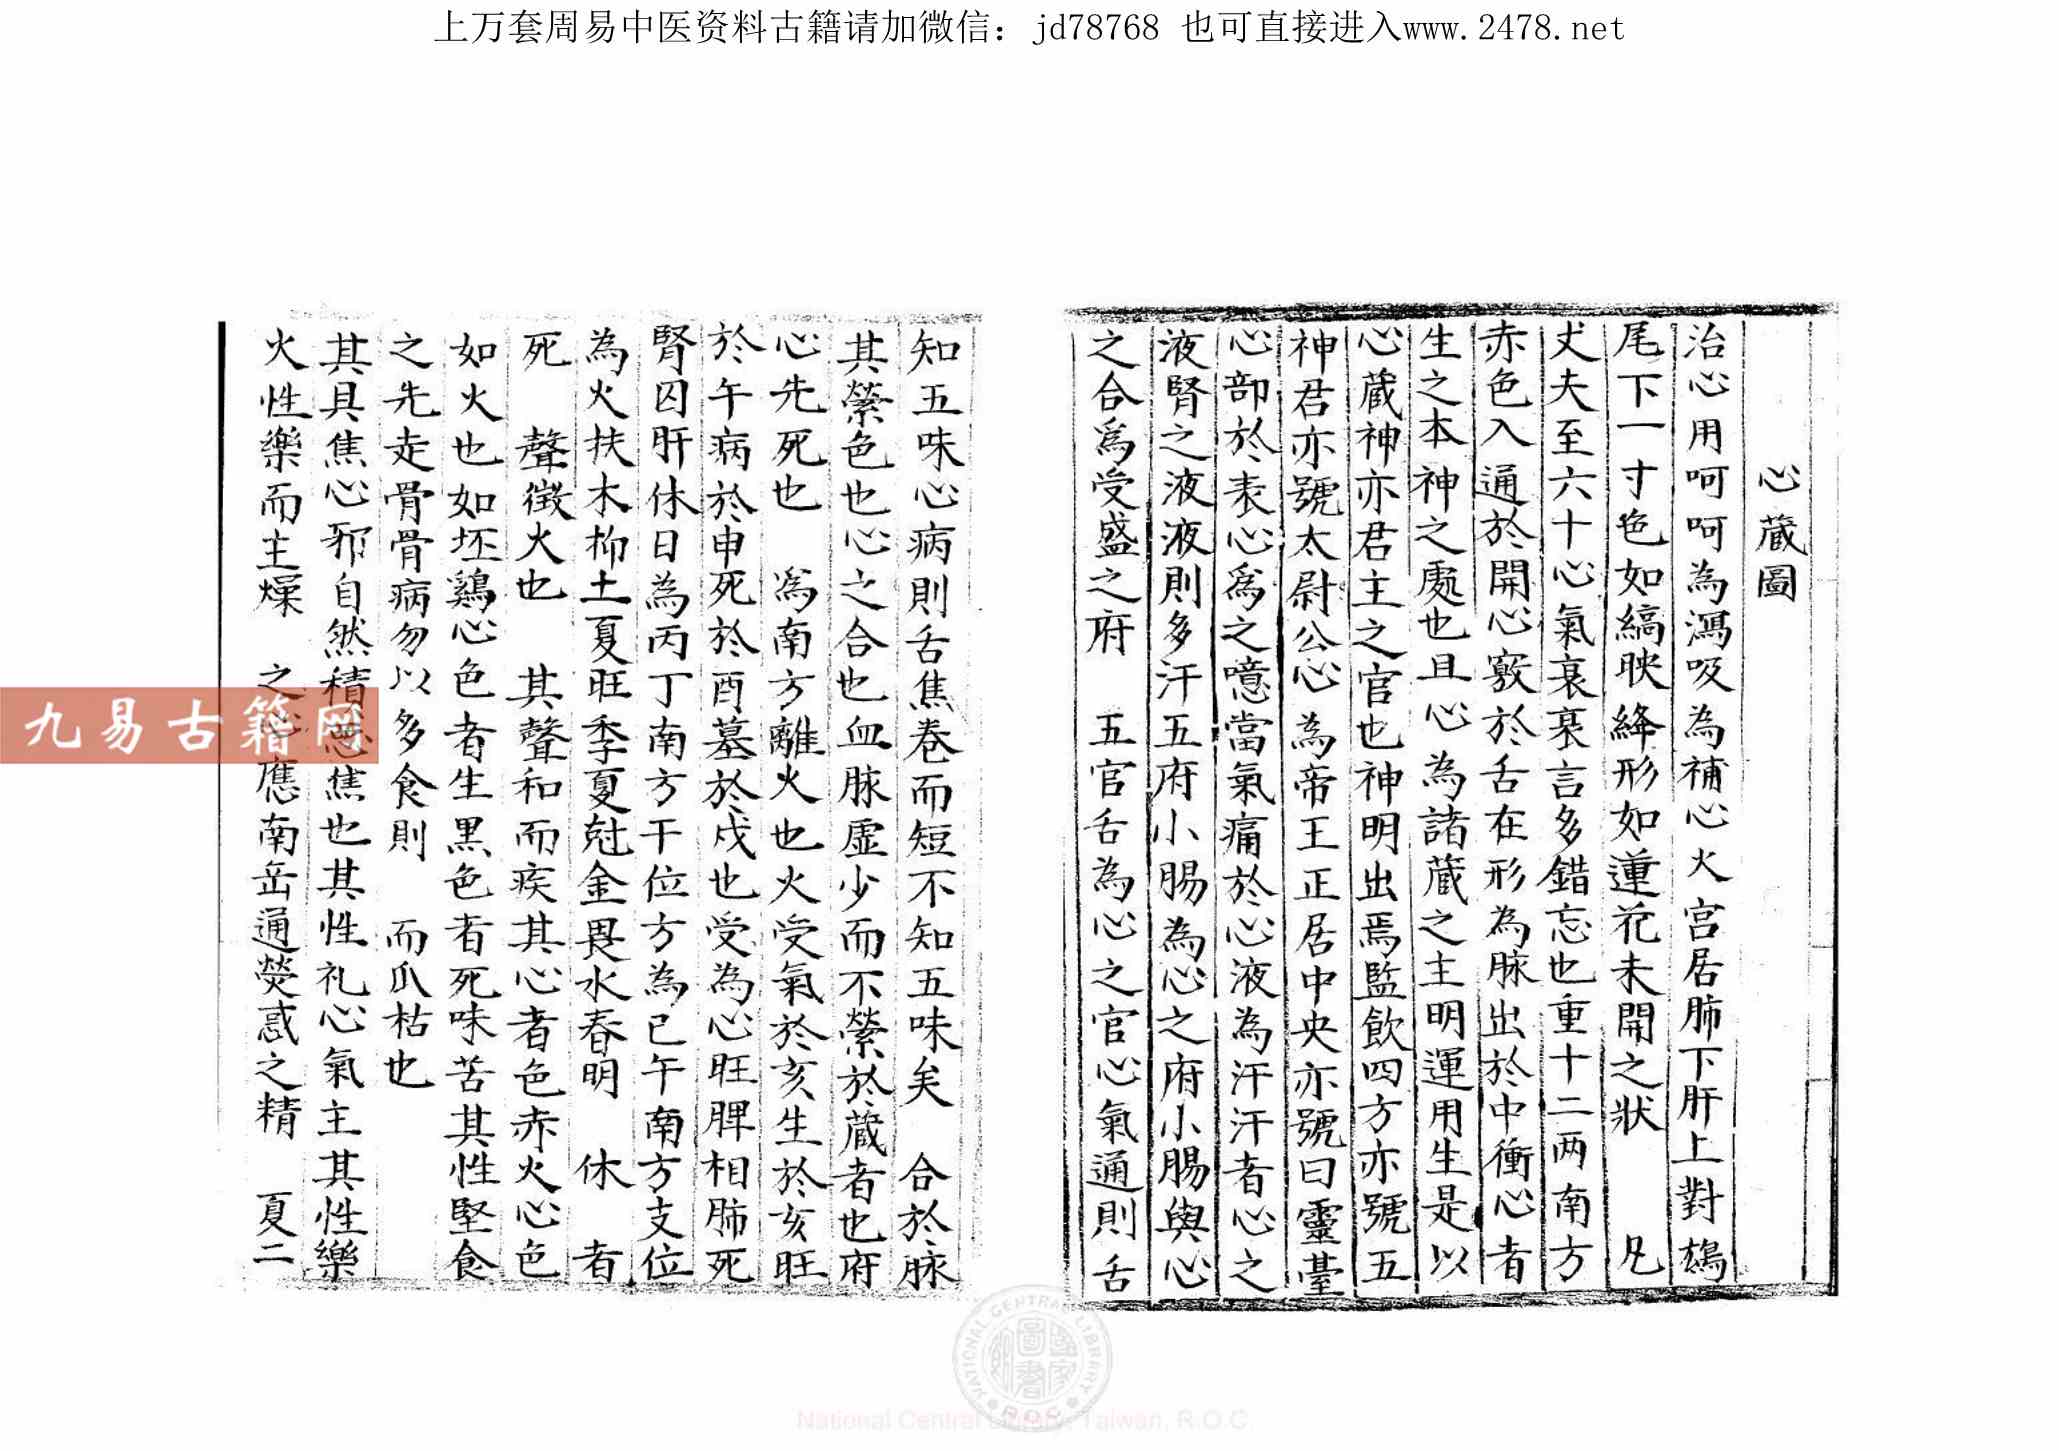 上万套周易中医资料古籍请加微信：jd78768 也可直接进入www.2478.net
心蔵圖
治心用呵呵為瀉吸為補心火宫居肺下肝上對鴆
尾下一寸色如縞映絳形如蓮花未開之狀　凡
丈夫至六十心氣衰衰言多錯忘也重十二两南方
赤色入通於開心竅於舌在形為脉出於中衝心者
生之本神之處也且心為諸蔵之主明運用生是以
心蔵神亦君主之官也神明出焉監飲四方亦號五
神君亦號太尉公心為帝王正居中央亦號曰靈臺
心部於表心爲之噫當氣痛於心液為汗汗者心之
液腎之液液則多汗五府小腸為心之府小腸與心
之合爲受盛之府　五官舌為心之官心氣通則舌
知五味心病則舌焦卷而短不知五味矣　合於脉
其縈色也心之合也血脉虚少而不縈於蔵者也府
心先死也　為南方離火也火受氣於亥生於亥旺
於午病於申死於酉墓於戍也受為心旺脾相肺死
腎囚肝休日為丙丁南方干位方為已午南方支位
為火扶木柳土夏旺季夏尅金畏水春明　休　者
死　聲徴火也　其聲和而疾其心者色赤火心色
如火也如坯鷄心色者生黒色者死味苦其性堅食
之先走骨骨病勿以多食則　而爪枯也
其具焦心邪自然積　焦也其性礼心氣主其性樂
火性樂而主燥　之　應南岳通熒惑之精　夏二
九易古籍网
NATIONAL CENTRAL LIBRARY
R.O.C
National Central Library, Taiwan, R.O.C